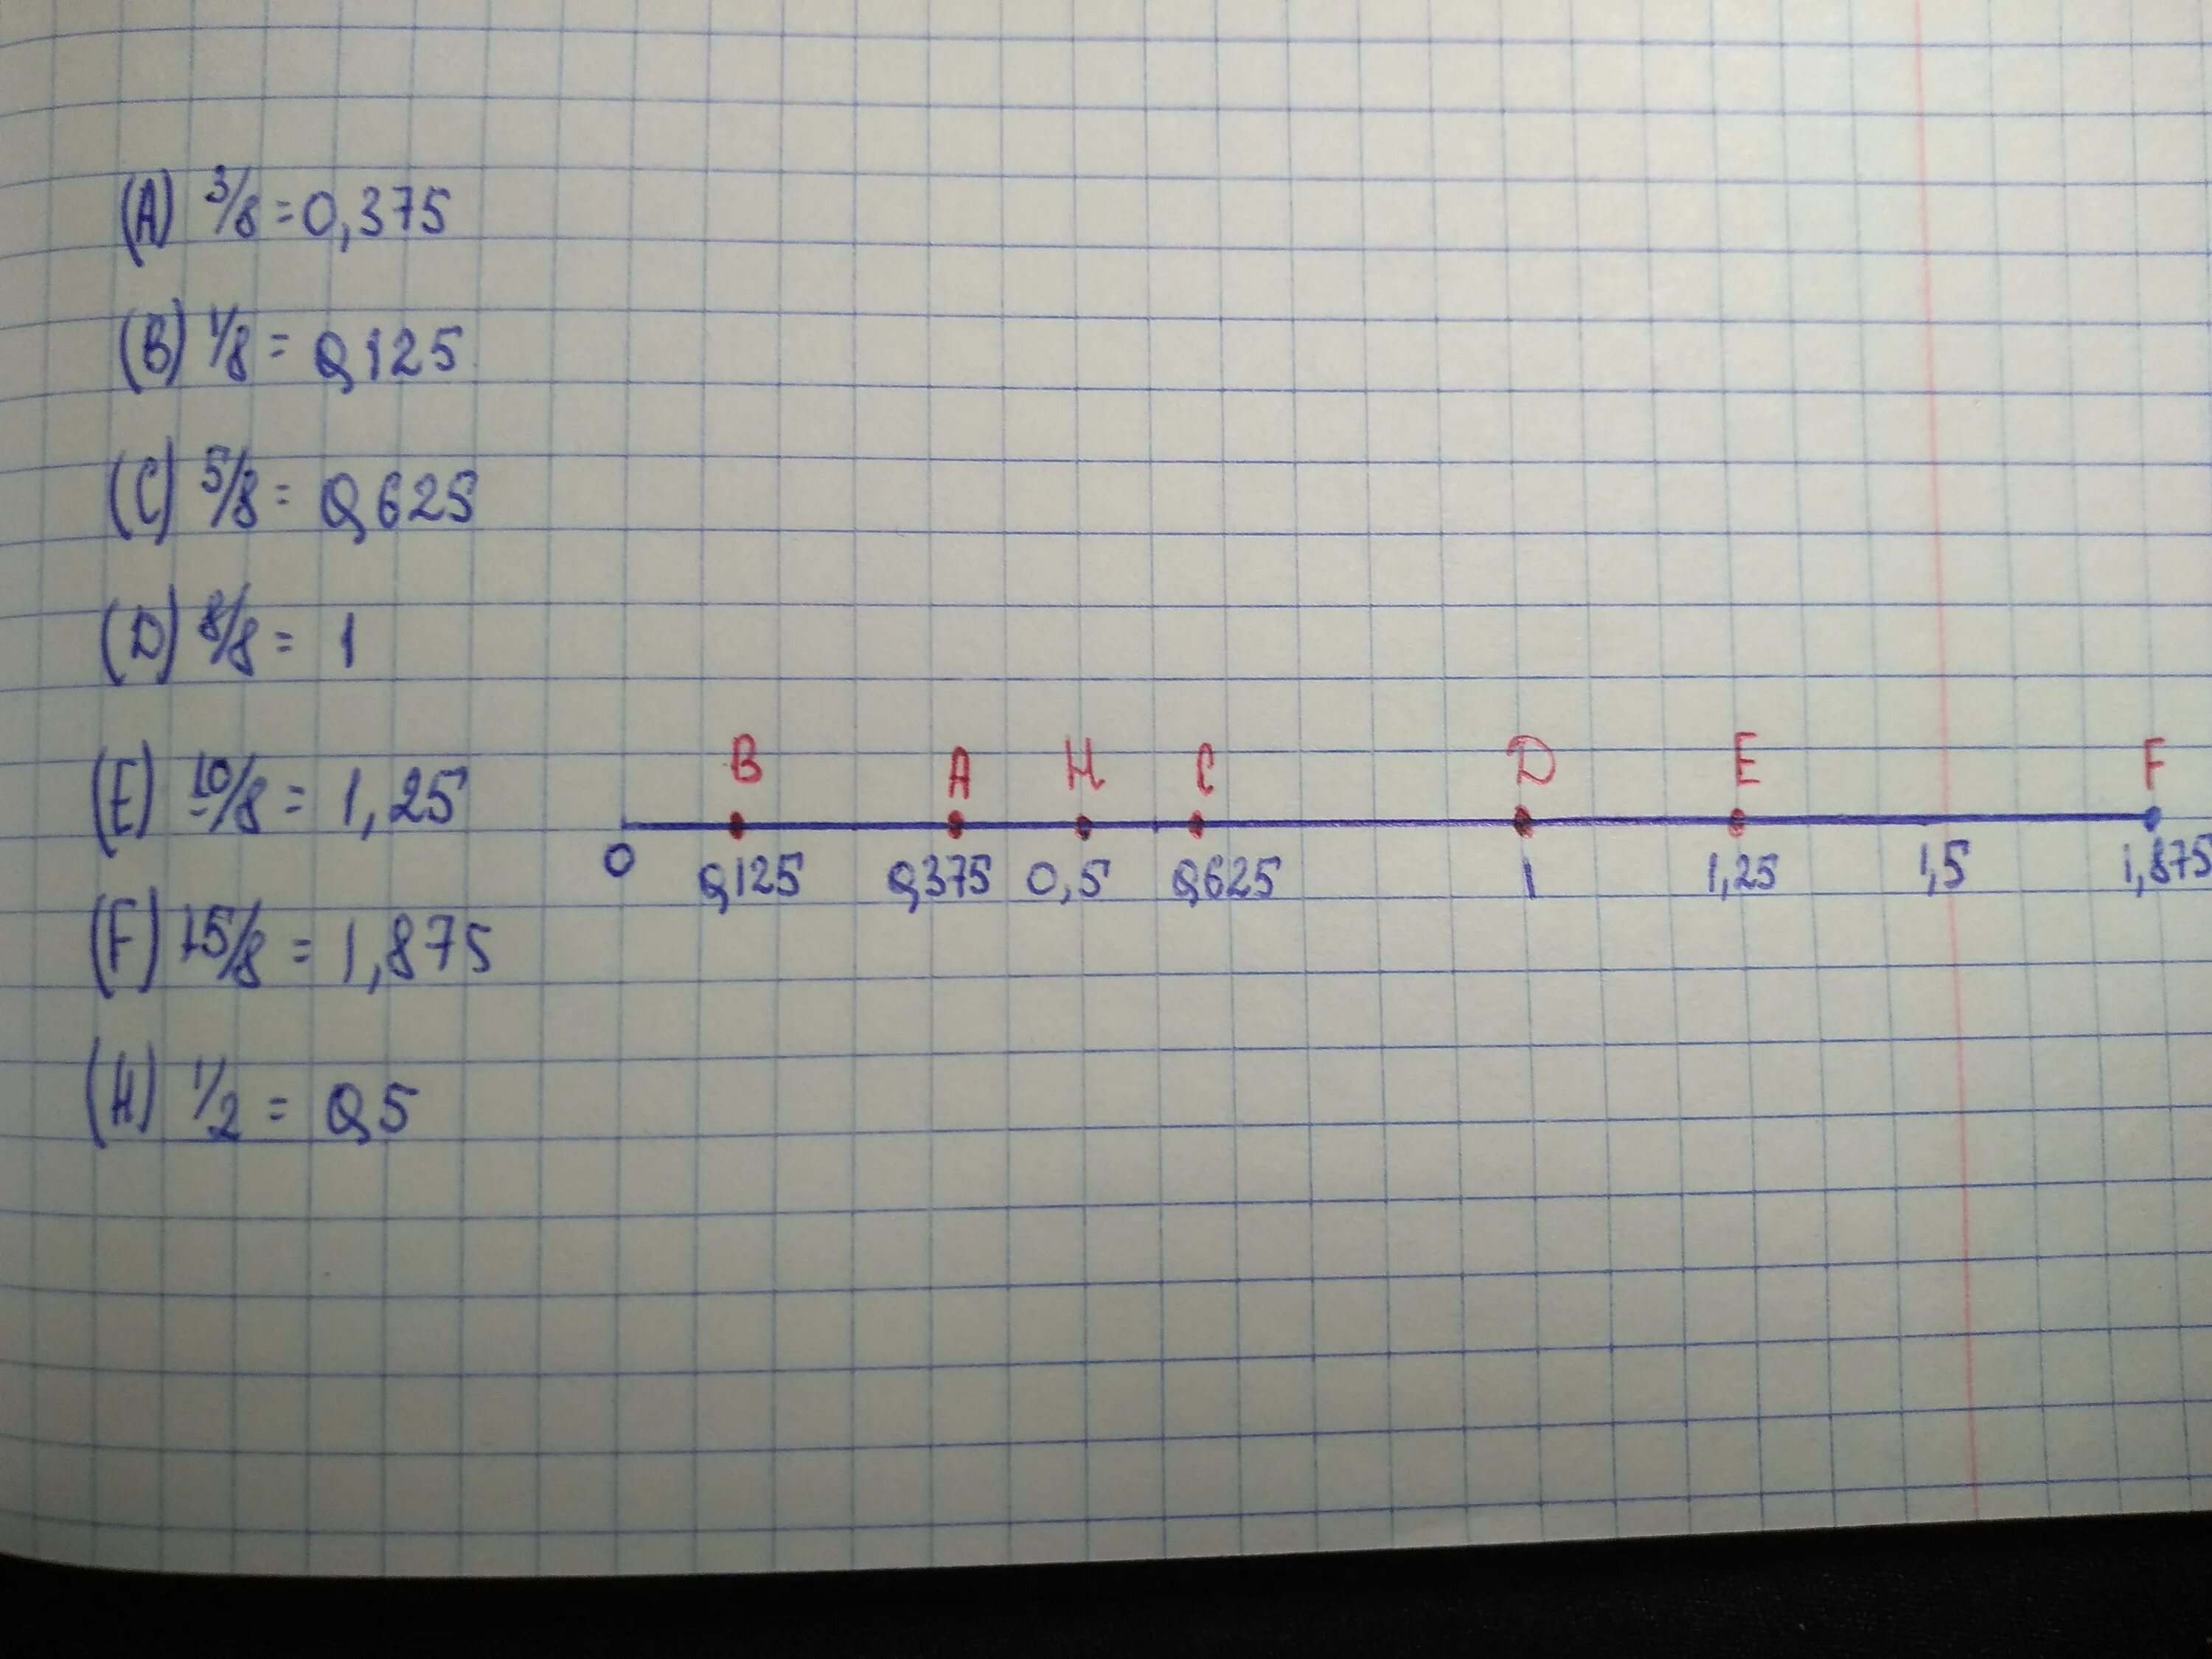 (A) 3/8 = 0,375
(B) 1/8 = 0,125
(C) 5/8 = 0,625
(D) 8/8 = 1
(E) 10/8 = 1,25
B A H C D E F
0 0,125 0,375 0,5 0,625 1 1,25 1,5 1,875
(F) 15/8 = 1,875
(H) 1/2 = 0,5